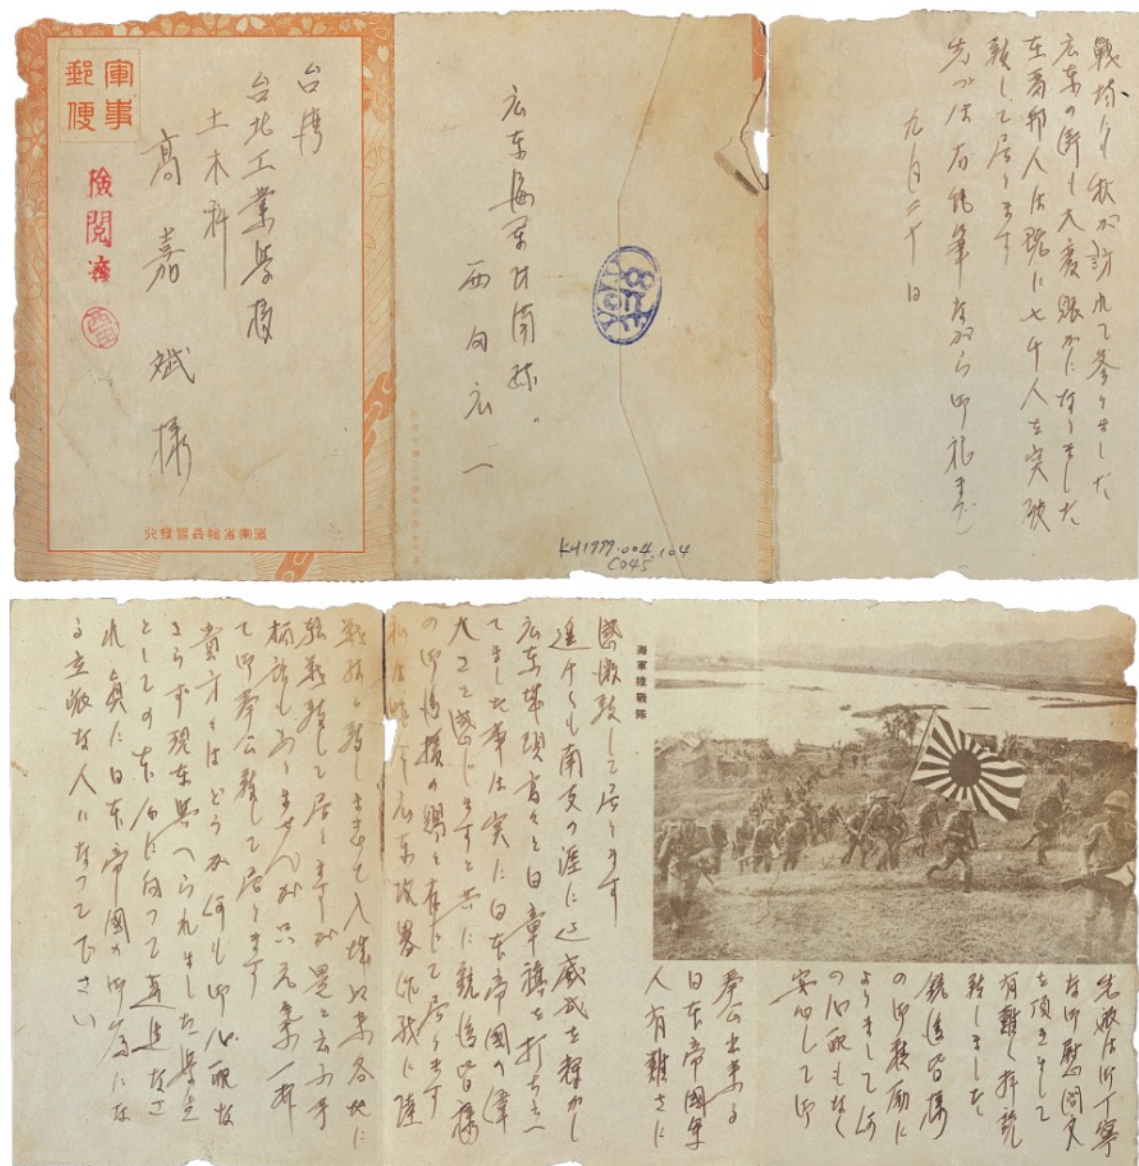 軍事
郵便
検閲済
台湾
台北工業學校
土木科
高嘉斌様
広東海軍
西向広一
戦場にも秋が訪れて参りました
広東の街も大変賑かになりました
在留邦人は既に七千人を突破
致して居ります
先づは右乱筆ながら御礼まで
九月二十日
KH1999.004.104
C045
海軍陸戦隊
先般は御丁寧
な御慰問文
を頂きまして
有難く拝読
致しました
銃後皆様
の御慰問に
よりまして何
の心配もなく
安心して御
奉公出来る
日本帝國軍
人有難さに
感激致して居ります
遥々も南支の涯に迄威武を輝かし
広東城頭高々と日章旗を打ち立
てました事は実に日本帝國の偉
大さを感じますと共に銃後皆様
の御後援の賜と存じて居ります
私は昨年広東攻畧作戦に陸
戦隊と致しまして入城以来各地に
転戦致して居りますが是と云ふ手
柄話もありませんが只元気一杯
て御奉公致して居ります
貴方々はどうか何も御心配な
さらず現在与へられました学生
としての本分に向つて邁進なさ
れ真に日本帝國の御為にな
る立派な人になつて下さい